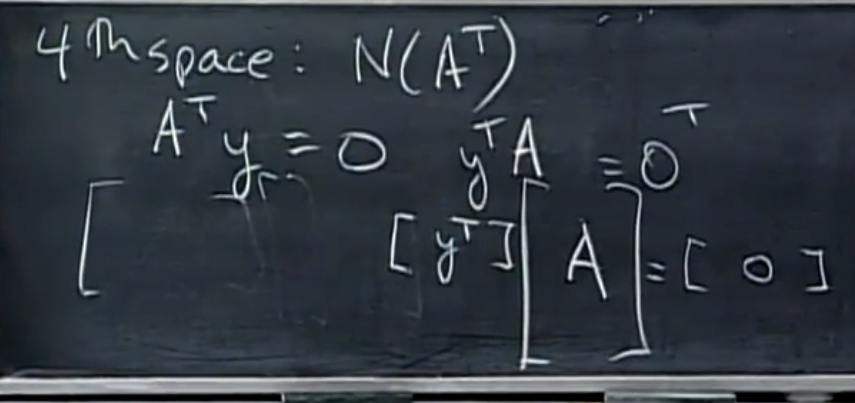 4th space: N(Aᵀ)
Aᵀy = 0 yᵀA = 0ᵀ
[ [yᵀ] [A] = [0]